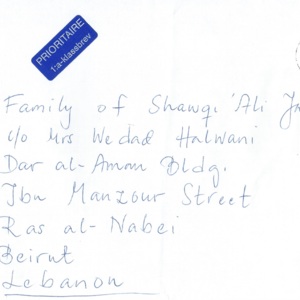 PRIORITAIRE
1:a-klassbrev
Family of Shawqi 'Ali
c/o Mrs Wedad Halwani
Dar al-Amon Bldg.
Ibn Manzour Street
Ras al-Nabei
Beirut
Lebanon